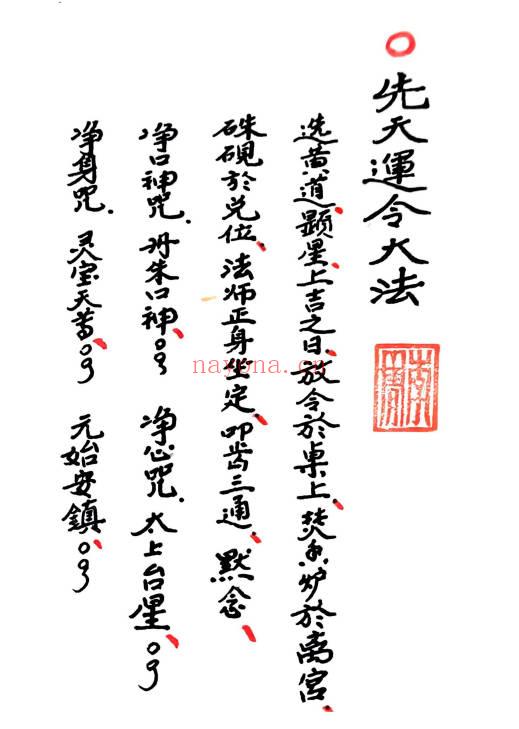 先天運令大法
选黄道、顕星、上吉之日、放令於桌上、焚香炉於离宫、
硃硯於兑位、法师正身坐定、叩齿三通、默念、
净口神咒.丹朱口神、。净心咒.太上台星、。
净身咒.灵宝天尊、。元始安鎮、。
nayona.cn